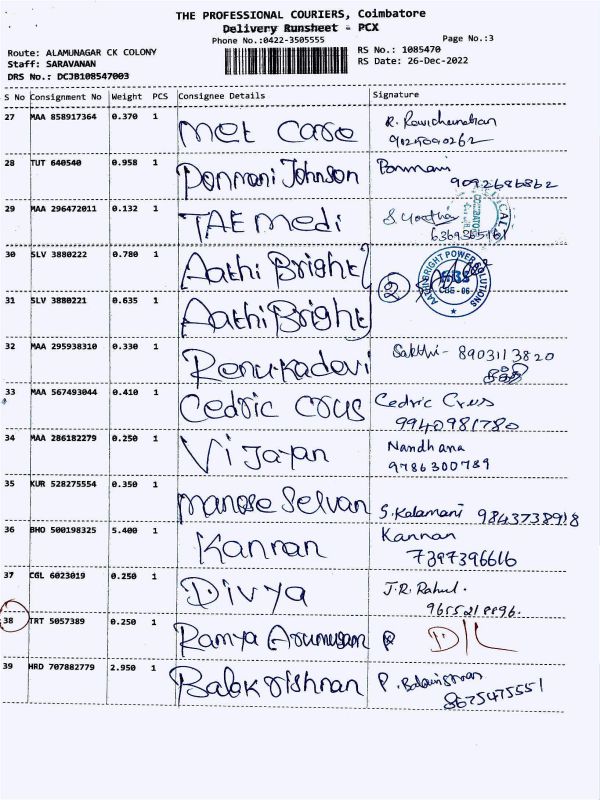 THE PROFESSIONAL COURIERS, Coimbatore
Delivery Runsheet - PCX
Phone No.:0422-3505555
Page No.:3
Route: ALAMUNAGAR CK COLONY
RS No.: 1085470
Staff: SARAVANAN
RS Date: 26-Dec-2022
DRS No.: DCJB108547003
S No Consignment No Weight PCS Consignee Details Signature
27 MAA 858917364 0.370 1 Met Care R. Ravichandran
28 TUT 640540 0.958 1 Ponmani Johnson Ponmani
9092686862
29 MAA 296472011 0.132 1 TAE Medi
6369365161
30 SLV 3880222 0.780 1 Aathi Bright
2 AATHI BRIGHT POWER SOLUTIONS
CBE - 06
31 SLV 3880221 0.635 1 Aathi Bright
32 MAA 295938310 0.330 1 Renukadevi Sakthi - 8903113820
33 MAA 567493044 0.410 1 Cedric Crus Cedric Crus
9940981780
34 MAA 286182279 0.250 1 Vijayan Nandhana
9786300789
35 KUR 528275554 0.350 1 Manose Selvan S. Kalamani 9843738918
36 BHO 500198325 5.400 1 Kannan Kannan
7397396616
37 CGL 6023019 0.250 1 Divya J.R. Rahul.
38 TRT 5057389 0.250 1 Ramya Arumugam D/L
39 HRD 707882779 2.950 1 Balakrishnan
8675475551